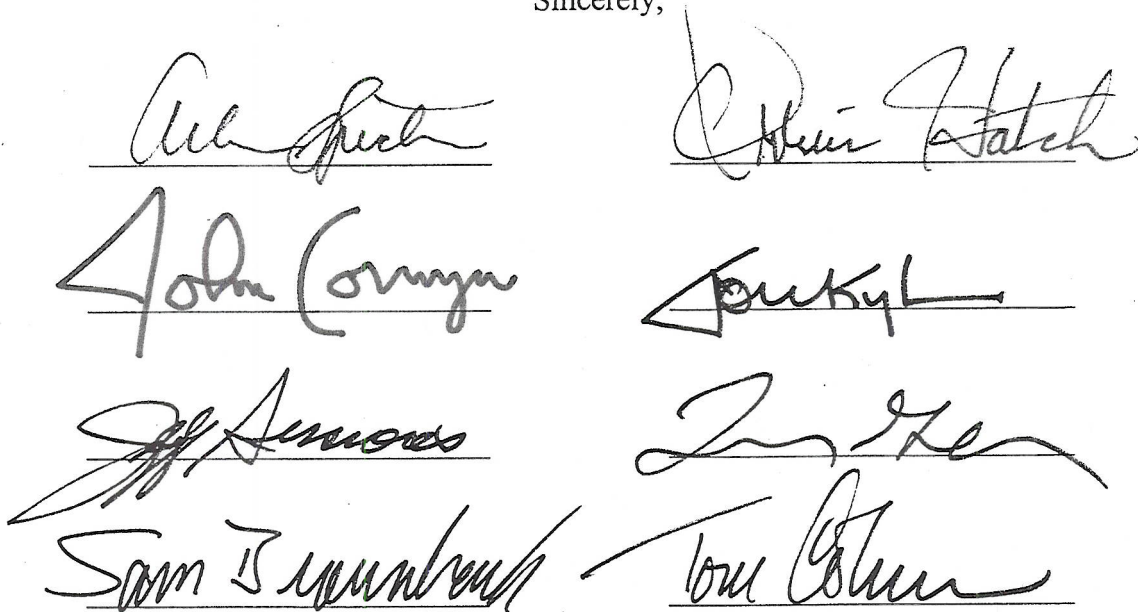 Sincerely,
Arlen Specter Orrin Hatch
John Cornyn Jon Kyl
Jeff Sessions
Sam Brownback Tom Coburn